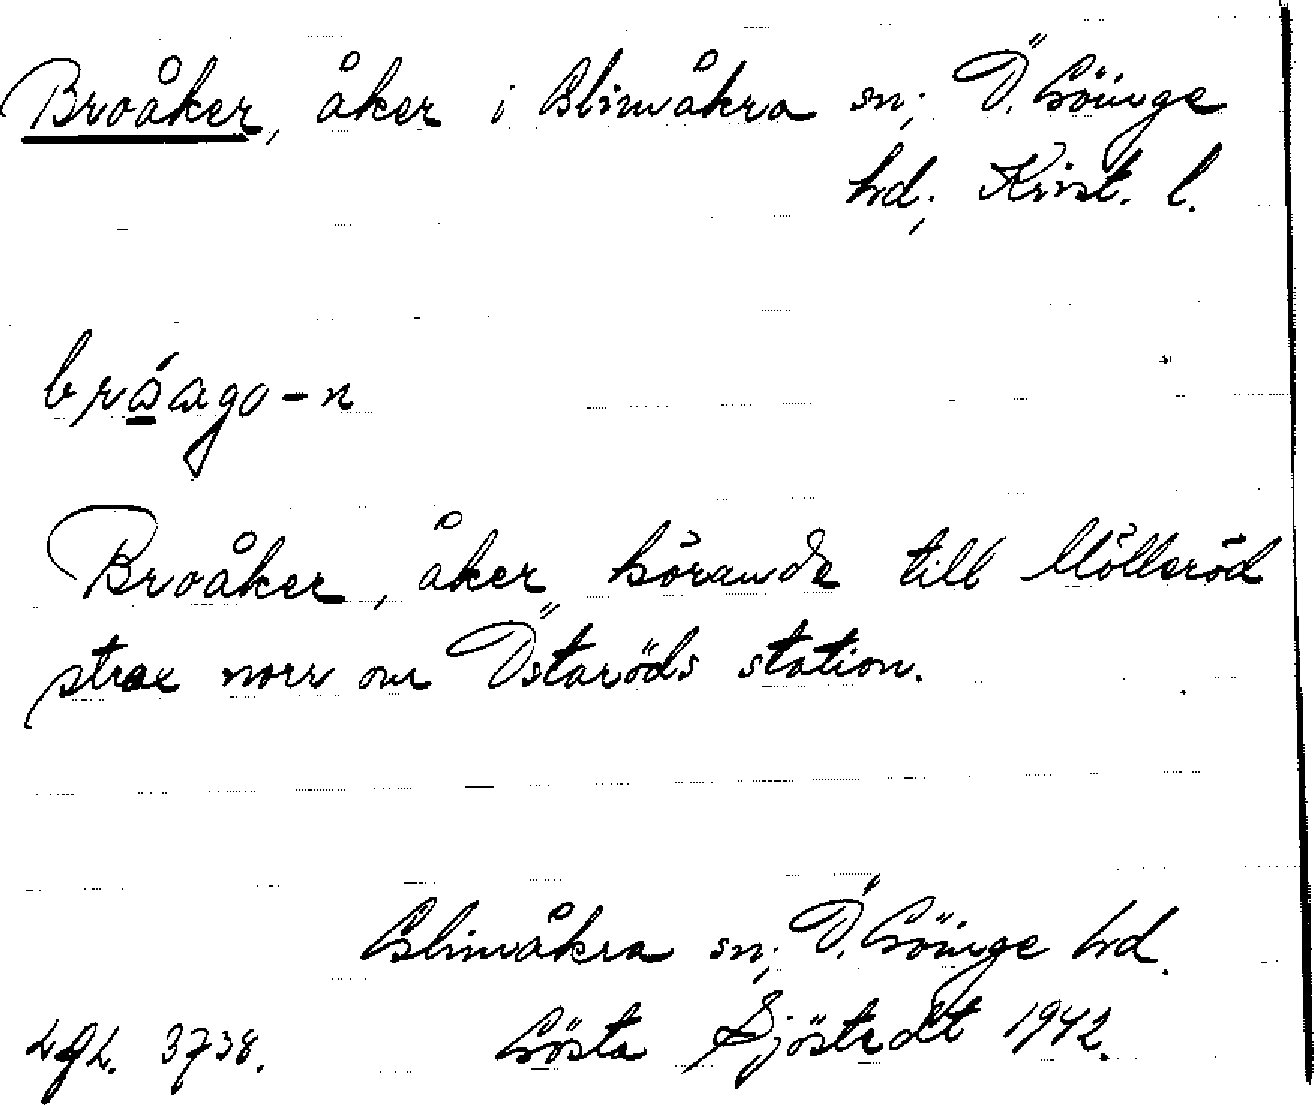 Broåker, åker i Glimåkra sn; Ö. Göinge
hd; Krist. l.
bróago-n
Broåker, åker hörande till Mölleröd
strax norr om Östaröds station.
Glimåkra sn; Ö. Göinge hd.
Lgh. 3738. Gösta Sjöstedt 1942.